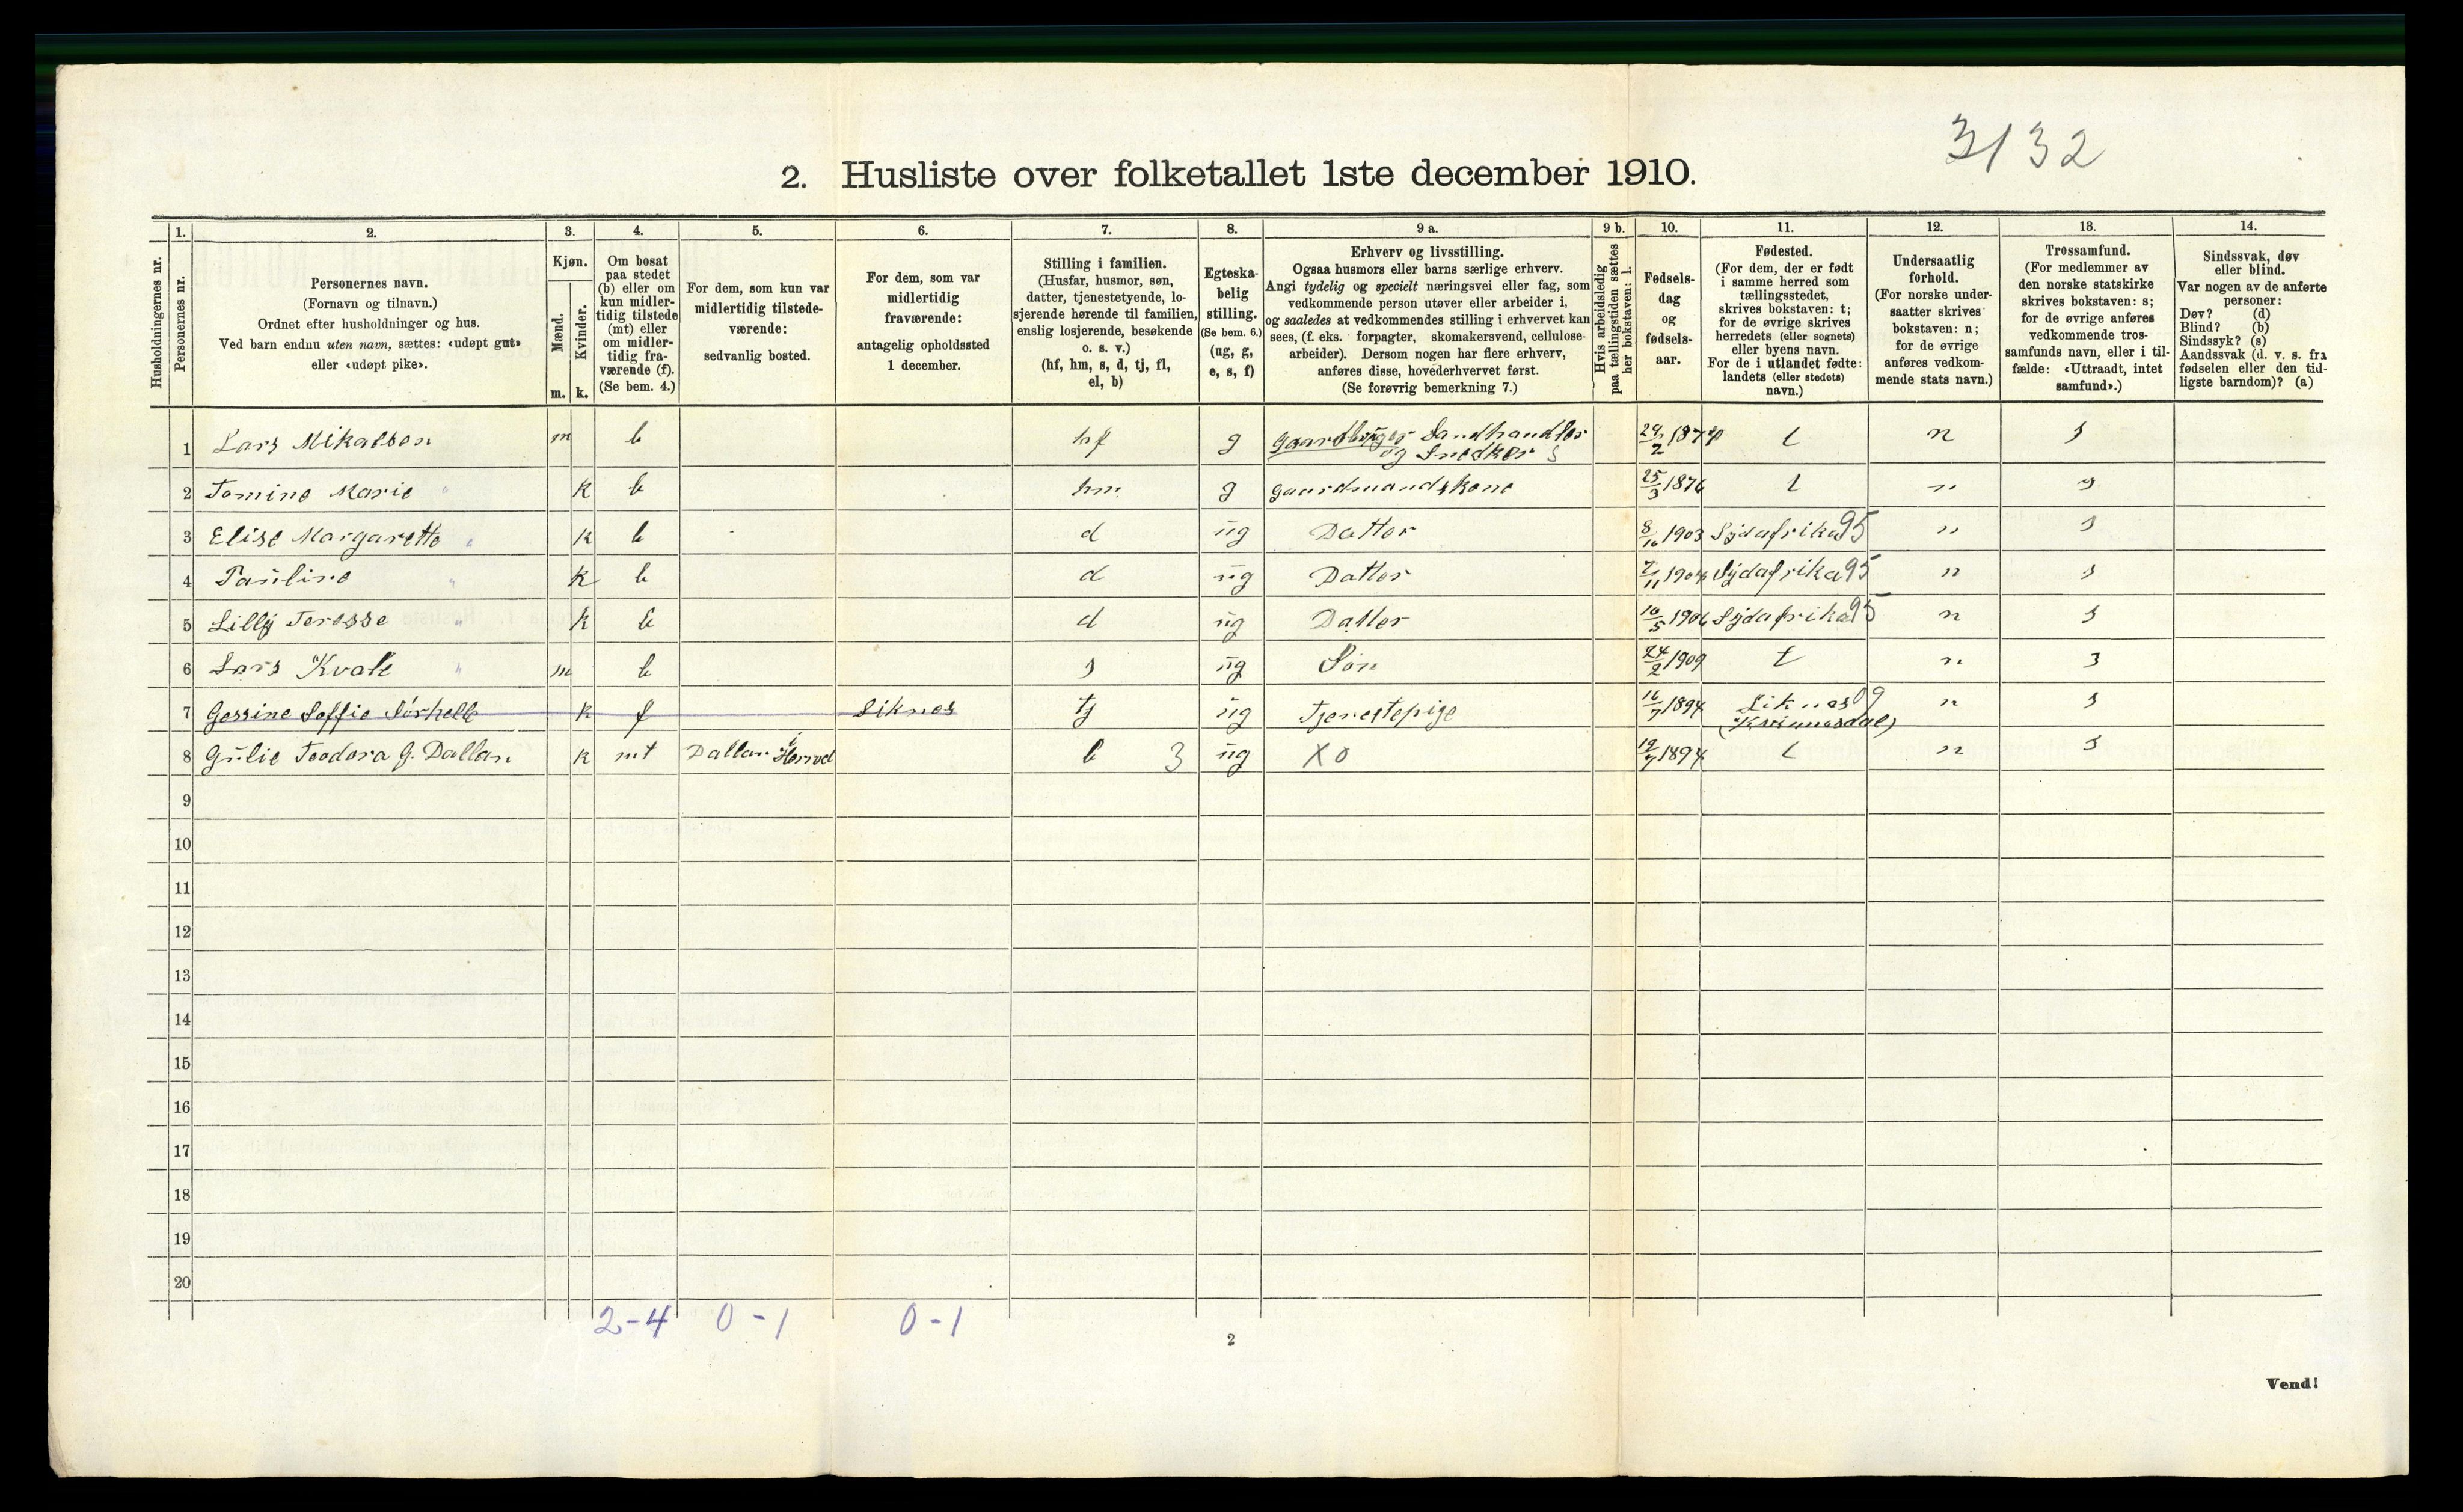 3/32
2. Husliste over folketallet 1ste december 1910.
Husholdningernes nr.
1. Personernes nr.
2. Personernes navn.
(Fornavn og tilnavn.)
Ordnet efter husholdninger og hus.
Ved barn endnu uten navn, sættes: «udøpt gut»
eller «udøpt pike».
3. Kjøn.
Mænd. m.
Kvinder. k.
4. Om bosat
paa stedet
(b) eller om
kun midler-
tidig tilstede
(mt) eller
om midler-
tidig fra-
værende (f).
(Se bem. 4.)
5. For dem, som kun var
midlertidig tilstede-
værende:
sedvanlig bosted.
6. For dem, som var
midlertidig
fraværende:
antagelig opholdssted
1 december.
7. Stilling i familien.
(Husfar, husmor, søn,
datter, tjenestetyende, lo-
sjerende hørende til familien,
enslig losjerende, besøkende
o. s. v.)
(hf, hm, s, d, tj, fl,
el, b)
8. Egteska-
belig
stilling.
(Se bem. 6.)
(ug, g,
e, s, f)
9 a. Erhverv og livsstilling.
Ogsaa husmors eller barns særlige erhverv.
Angi tydelig og specielt næringsvei eller fag, som
vedkommende person utøver eller arbeider i,
og saaledes at vedkommendes stilling i erhvervet kan
sees, (f. eks. forpagter, skomakersvend, cellulose-
arbeider). Dersom nogen har flere erhverv,
anføres disse, hovederhvervet først.
(Se forøvrig bemerkning 7.)
9 b. Hvis arbeidsledig
paa tællingstiden sættes
her bokstaven: l.
10. Fødsels-
dag
og
fødsels-
aar.
11. Fødested.
(For dem, der er født
i samme herred som
tællingsstedet,
skrives bokstaven: t;
for de øvrige skrives
herredets (eller sognets)
eller byens navn.
For de i utlandet fødte:
landets (eller stedets)
navn.)
12. Undersaatlig
forhold.
(For norske under-
saatter skrives
bokstaven: n;
for de øvrige
anføres vedkom-
mende stats navn.)
13. Trossamfund.
(For medlemmer av
den norske statskirke
skrives bokstaven: s;
for de øvrige anføres
vedkommende tros-
samfunds navn, eller i til-
fælde: «Uttraadt, intet
samfund».)
14. Sindssvak, døv
eller blind.
Var nogen av de anførte
personer:
Døv? (d)
Blind? (b)
Sindssyk? (s)
Aandssvak (d. v. s. fra
fødselen eller den tid-
ligste barndom)? (a)
1 Lars Mikalson m b hf g Gaardbruger Landhandler
og Snedker s 24/2 187 t n s
2 Tomine Marie " k b hm g gaardmandskone 25/3 1876 t n s
3 Elise Margarette " k b d ug Datter 8/10 1903 Sydafrika 95 n s
4 Pauline " k b d ug Datter 7/11 1904 Sydafrika 95 n s
5 Lilly Teresse " k b d ug Datter 10/5 1906 Sydafrika 95 n s
6 Lars Kvale " m b s ug Søn 24/2 1909 t n s
7 Gessine Soffie k f Liknes tj ug Tjenestepige 16/7 1894 Liknes 09 n s
(Kvinnesdal)
8 Gulie Teodora G. Dallan k mt Dallan i Herred b 3 ug X0 19/7 1894 t n s
9
10
11
12
13
14
15
16
17
18
19
20
2-4 0-1 0-1
2
Vend!